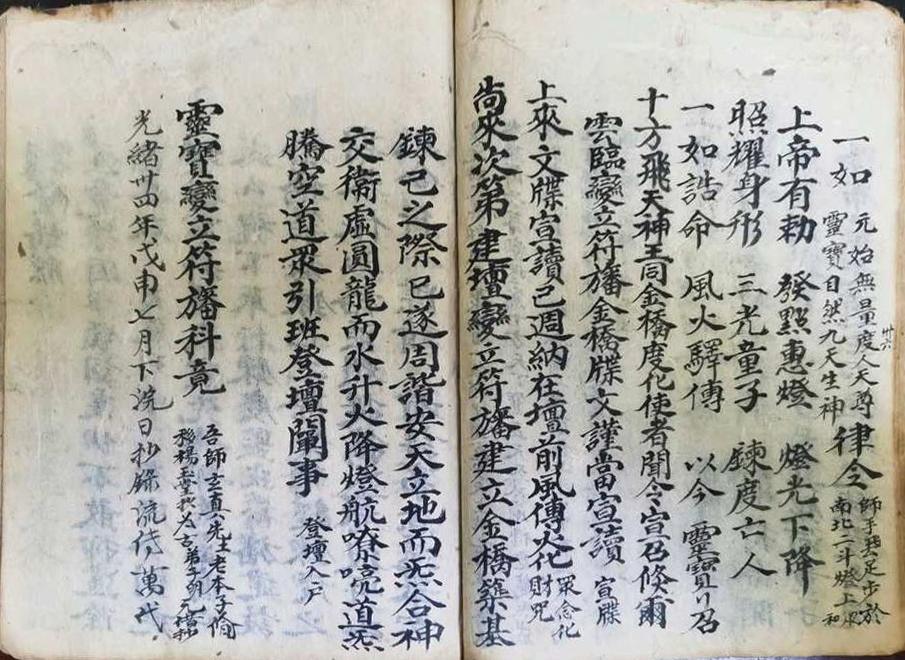 一如 元始無量度人天尊 靈寶自然九天生神 律令 師手 足步於 南北二斗燈上
廿六
上帝有勅 發點惠燈 燈光下降
照耀身形 三光童子 鍊度亡人
一如誥命 風火驛傳 以今 靈寶 召
十方飛天神王同金橋度化使者聞今宣召倏爾
雲臨變立符旛金橋牒文謹當宣讀 宣牒
上來文牒宣讀已週納在壇前風傳火化 眾念化財咒
尚來次第建壇變立符旛建立金橋築基
鍊己之際已逐周諧安天立地而炁合神
交衛虛圓龍而水升火降燈航嘹喨道炁
騰空道眾引班登壇闡事 登壇入戶
靈寶變立符旛科竟 吾師玄真先生老本子俻
楊 弟子明 抄
光緒卅四年戊申七月下浣日抄錄流侍萬代